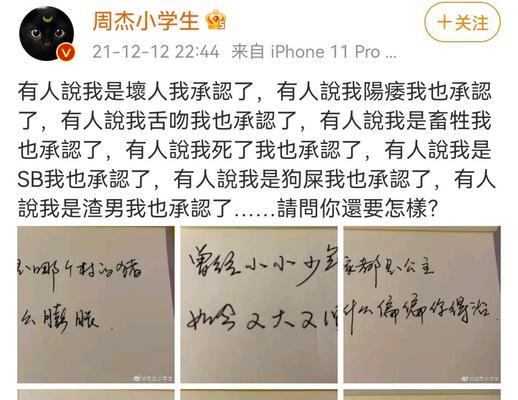 周杰小学生
21-12-12 22:44 来自 iPhone 11 Pro ...
+关注
有人說我是壞人我承認了，有人說我陽痿我也承認
了，有人說我舌吻我也承認了，有人說我是畜牲我
也承認了，有人說我死了我也承認了，有人說我是
SB我也承認了，有人說我是狗屎我也承認了，有人
說我是渣男我也承認了……請問你還要怎樣？
哪个村的猪
么膨胀.
曾经小小少年
如今又大又
家都是公主
什么偏偏你得治.
@周杰小学生
@周杰小学生